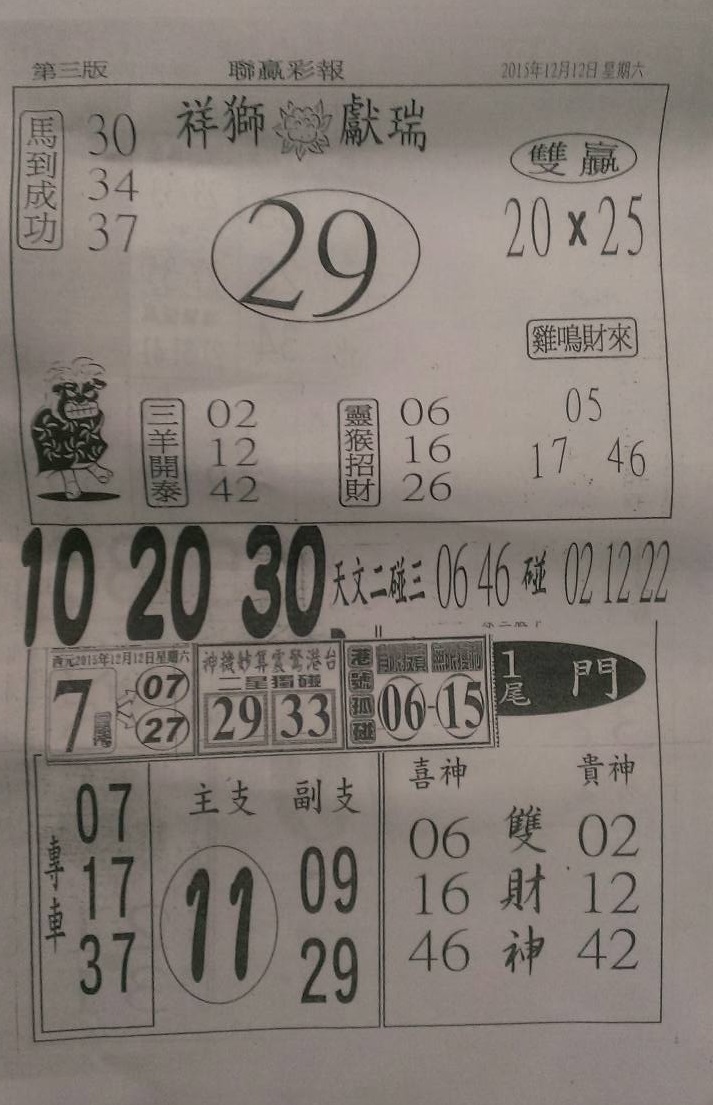 第三版 聯贏彩報 2015年12月12日 星期六
祥獅 獻瑞
馬到成功
30
34
37
29
雙贏
20 x 25
雞鳴財來
05
17 46
三羊開泰
02
12
42
靈猴招財
06
16
26
10 20 30 天文二碰三 06 46 碰 02 12 22
西元2015年12月12日星期六
7
07
27
神機妙算震驚港台
二星獨碰
29 33
港號孤碰
06-15
1尾 門
專車
07
17
37
主支 副支
11
09
29
喜神 貴神
06 雙 02
16 財 12
46 神 42